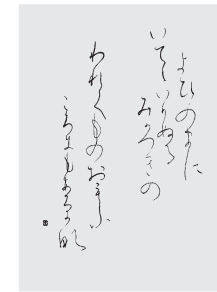 よひのまに
いてゝいりぬる
みかつきの
われてものおもふ
ころにもあるか那